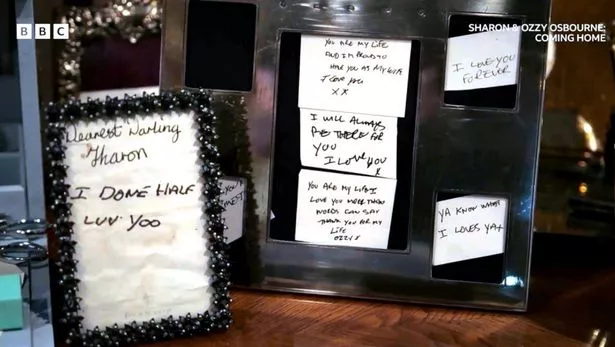 BBC
SHARON & OZZY OSBOURNE:
COMING HOME
Dearest Darling
Sharon
I DONE HALF
LUV YOO
YOU ARE MY LIFE
AND I'M PROUD TO
HAVE YOU AS MY WIFE
I love you
X X
I WILL ALWAYS
BE THERE FOR
YOU
I LOVE YOU
X
YOU ARE MY LIFE I
LOVE YOU MORE THEN
WORDS CAN SAY
THANK YOU FOR MY
LIFE
OZZY X
I LOVE YOU
FOREVER
YA KNOW WHAT
I LOVES YA X